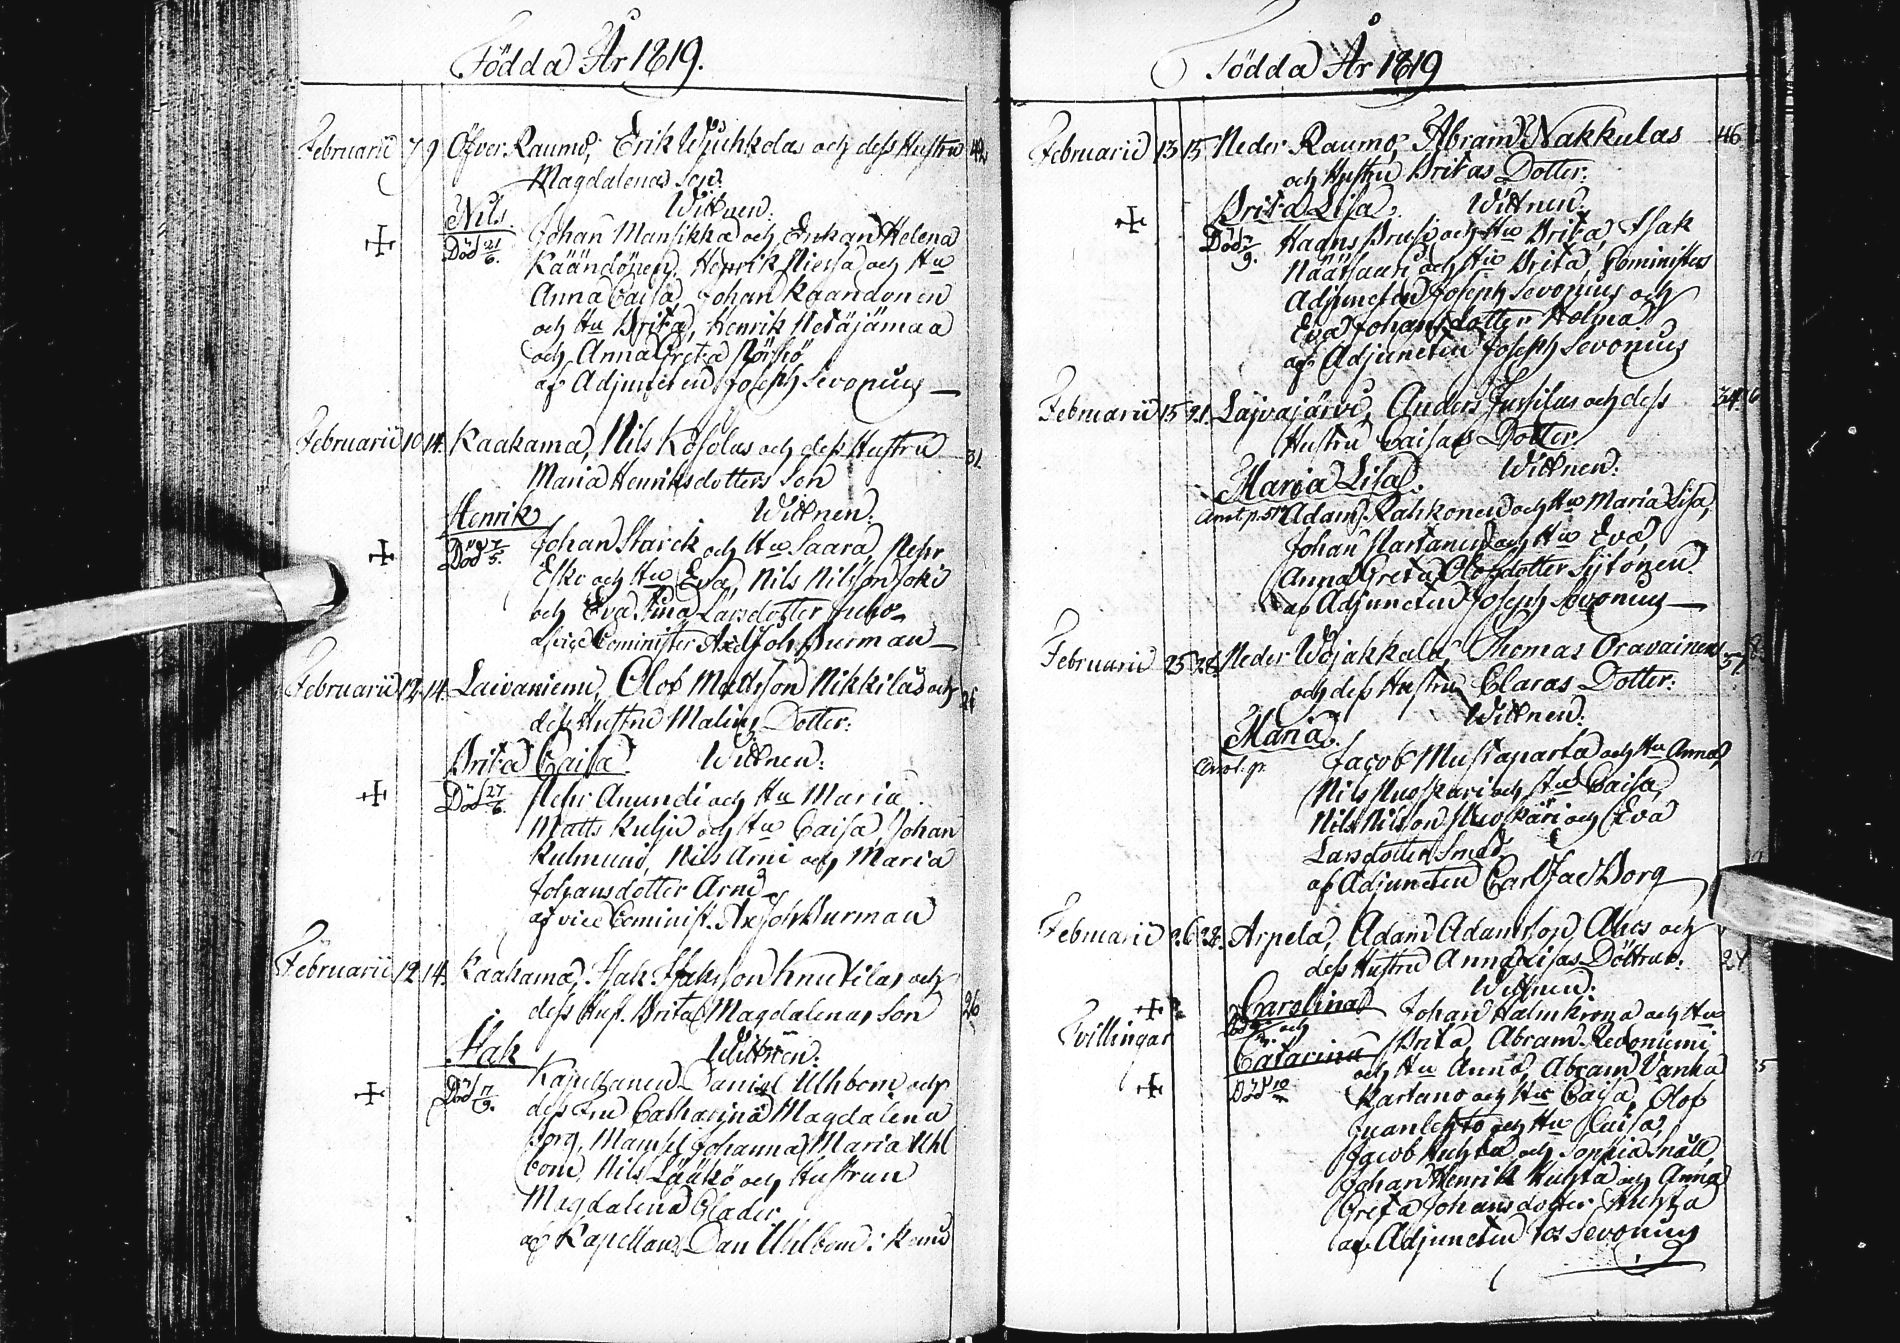 Födda År 1819.
Februarii 7 9 Öfver Raumo, Erik och dess Hustru 42
Magdalenas Son.
Nils Wittnen:
Död 21/6. Johan Mansikka och Enkan Helena
Käändönen, Henrik Niessa och Hu
Anna Caisa, Johan Kaandonen
och Hu Brita, Henrik Petäjämaa
och Anna Greta
af Adjuncten Joseph Sevonius
Februarii 10 14. Kaakama, Nils Kosolas och dess Hustru 31.
Maria Henriksdotters Son
Henrik Wittnen:
Död 7/5. Johan Starck och Hu Saara, Pehr
Esko och Hu Eva, Nils Nilsson Joki
och Eva Stina Larsdotter Juho
af vice Cominister Axel Joh Burman
Februarii 12 14. Laivaniemi, Olof Mattsson Nikkilas och
dess Hustru Malins Dotter:
Brita Caisa Wittnen:
Död 27/6. Pehr Anundi och Hu Maria
Matts Kulju och Hu Caisa, Johan
Kulmuni, Nils Arni och Maria
Johansdotter Arni
af vice Cominist. Ax Joh Burman
Februarii 12 14. Kaakama, Isak Isaksson Knutilas och 26
dess Hust. Brita Magdalenas Son
Isak Wittnen:
Död 17/9. Kapellanen Daniel Uhlbom och
dess Fru Catharina Magdalena
Borg, Mamsel Johanna Maria Uhl
bom, Nils Lääkö och Hustrun
Magdalena Clader
af Kapellan Dan Uhlbom i Kemi
Födda År 1819
Februarii 13 15 Neder Raumo, Abram Nakkulas 46
och Hustru Britas Dotter.
Brita Lisa. Wittnen:
Död /9. Hans Prusi och Hu Brita, Isak
Näätsaari och Hu Brita, Cominister
Adjuncten Joseph Sevonius och
Eva Johansdotter Holma
af Adjuncten Joseph Sevonius
Februarii 15 21. Laivajärvi, Anders Jussilas och dess 34
Hustru Caisas Dotter.
Maria Lisa. Wittnen:
Adam Rahkonen och Hu Maria Lisa,
Johan Martanen och Hu Eva
Anna Greta Olofsdotter Siitonen.
af Adjuncten Joseph Sevonius
Februarii 25 28. Neder Wojakkala, Thomas Oravainens 37
och dess Hustru Claras Dotter.
Maria. Wittnen:
Jacob Mustaparta och Hu Anna,
Nils Ruoskari och Hu Caisa,
Nils Nilsson Ruoskari och Eva
Larsdotter Smed
af Adjuncten Carl Jac Borg
Februarii 26 28. Arpela, Adam Adamsson Ahos och
dess Hustru Anna Lisas Döttrar. 24
Wittnen:
Carolina Johan Halmkrona och Hu
Tvillingar och Brita, Abram Kedoniemi
Catarina och Hu Anna, Abram Vanha
Död 10/ Kartano och Hu Caisa, Olof
Juanlehto och Hu Caisa,
Jacob Huhta och Sophia Snäll
Johan Henrik Huhta och Anna
Greta Johansdotter Huhta
af Adjuncten Jos Sevonius